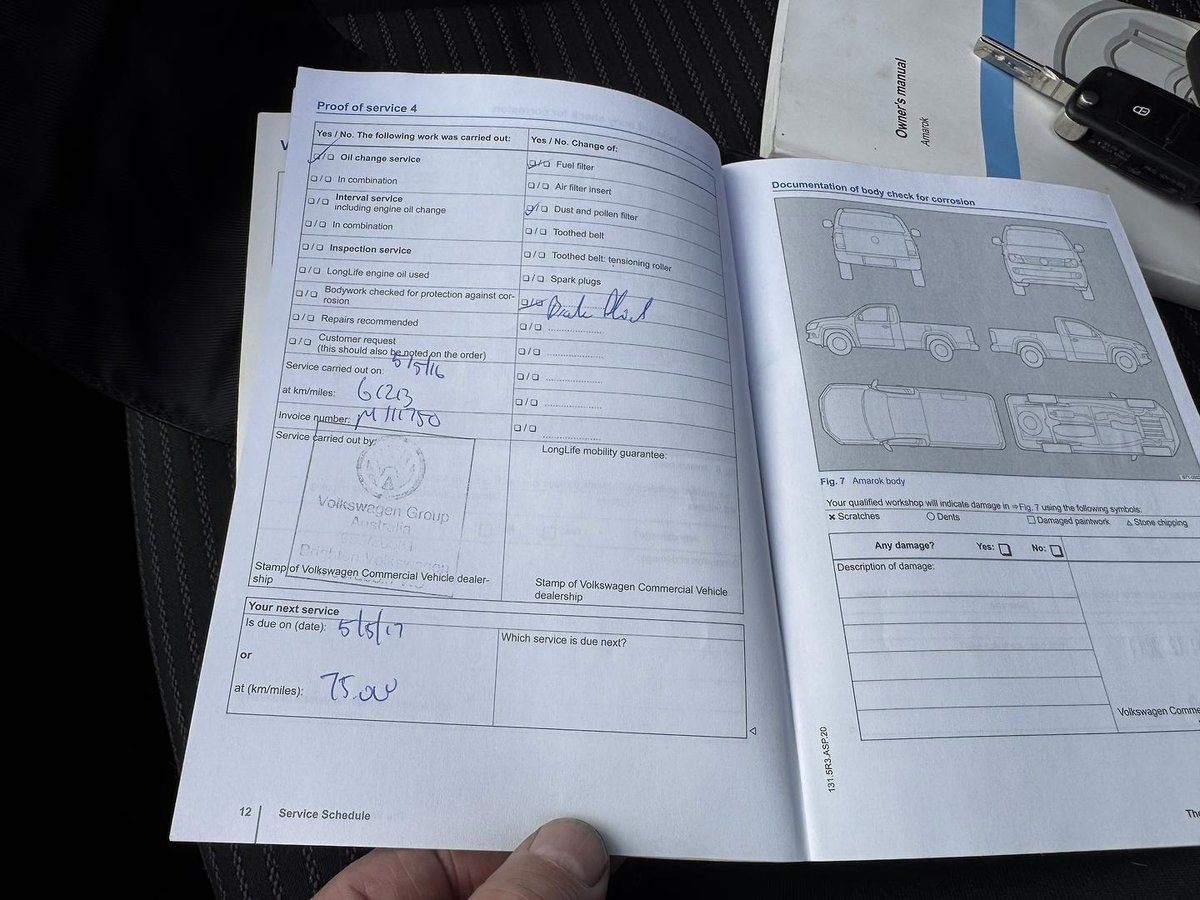 Owner's manual
Amarok
Proof of service 4
Yes / No. The following work was carried out:
Oil change service
In combination
Interval service
including engine oil change
In combination
Inspection service
LongLife engine oil used
Bodywork checked for protection against cor-
rosion
Repairs recommended
Customer request
(this should also be noted on the order)
Service carried out on: 5/5/16
at km/miles: 61213
Invoice number: M111750
Service carried out by:
Volkswagen Group
Australia
Stamp of Volkswagen Commercial Vehicle dealer-
ship
Yes / No. Change of:
Fuel filter
Air filter insert
Dust and pollen filter
Toothed belt
Toothed belt: tensioning roller
Spark plugs
LongLife mobility guarantee:
Stamp of Volkswagen Commercial Vehicle
dealership
Your next service
Is due on (date): 5/5/17
or
at (km/miles): 75.000
Which service is due next?
12 Service Schedule
Documentation of body check for corrosion
Fig. 7 Amarok body
Your qualified workshop will indicate damage in ⇒Fig. 7 using the following symbols:
× Scratches ○ Dents □ Damaged paintwork △ Stone chipping
Any damage? Yes: No:
Description of damage:
Volkswagen Comme
131.5R3.ASP.20
The